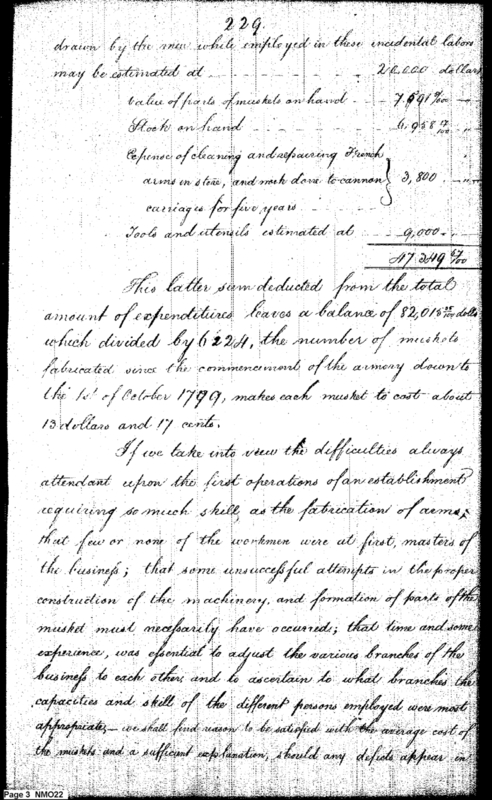 229.
drawn by the men while employed in these incidental labors
may be estimated at 20.000 dollars
value of parts of muskets on hand 7.591
Stock on hand 6.958 17/100
Expense of cleaning and repairing French
arms in store, and work done to cannon 3,800
carriages for five years
Tools and utensils estimated at 9,000
47.349 67/100
This latter sum deducted from the total
amount of expenditures leaves a balance of 82,015 dolls
which divided by 6224, the number of muskets
fabricated since the commencement of the armory down to
the 1st of October 1799, makes each musket to cost about
13 dollars and 17 cents.
If we take into view the difficulties always
attendant upon the first operations of an establishment
requiring so much skill, as the fabrication of arms;
that few or none of the workmen were at first, masters of
the business; that some unsuccessful attempts in the proper
construction of the machinery, and formation of parts of the
musket must necessarily have occurred; that time and some
experience, was essential to adjust the various branches of the
business to each other; and to ascertain to what branches the
capacities and skill of the different persons employed were most
appropriate;— we shall find reason to be satisfied with the average cost of
the muskets and a sufficient explanation, should any defects appear in
Page 3 NMO22